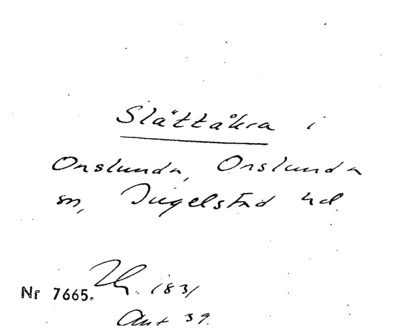 Slättåkra i
Onslunda, Onslunda
sn, Ingelstad hd.
Nr 7665. 1831
Akt 39.